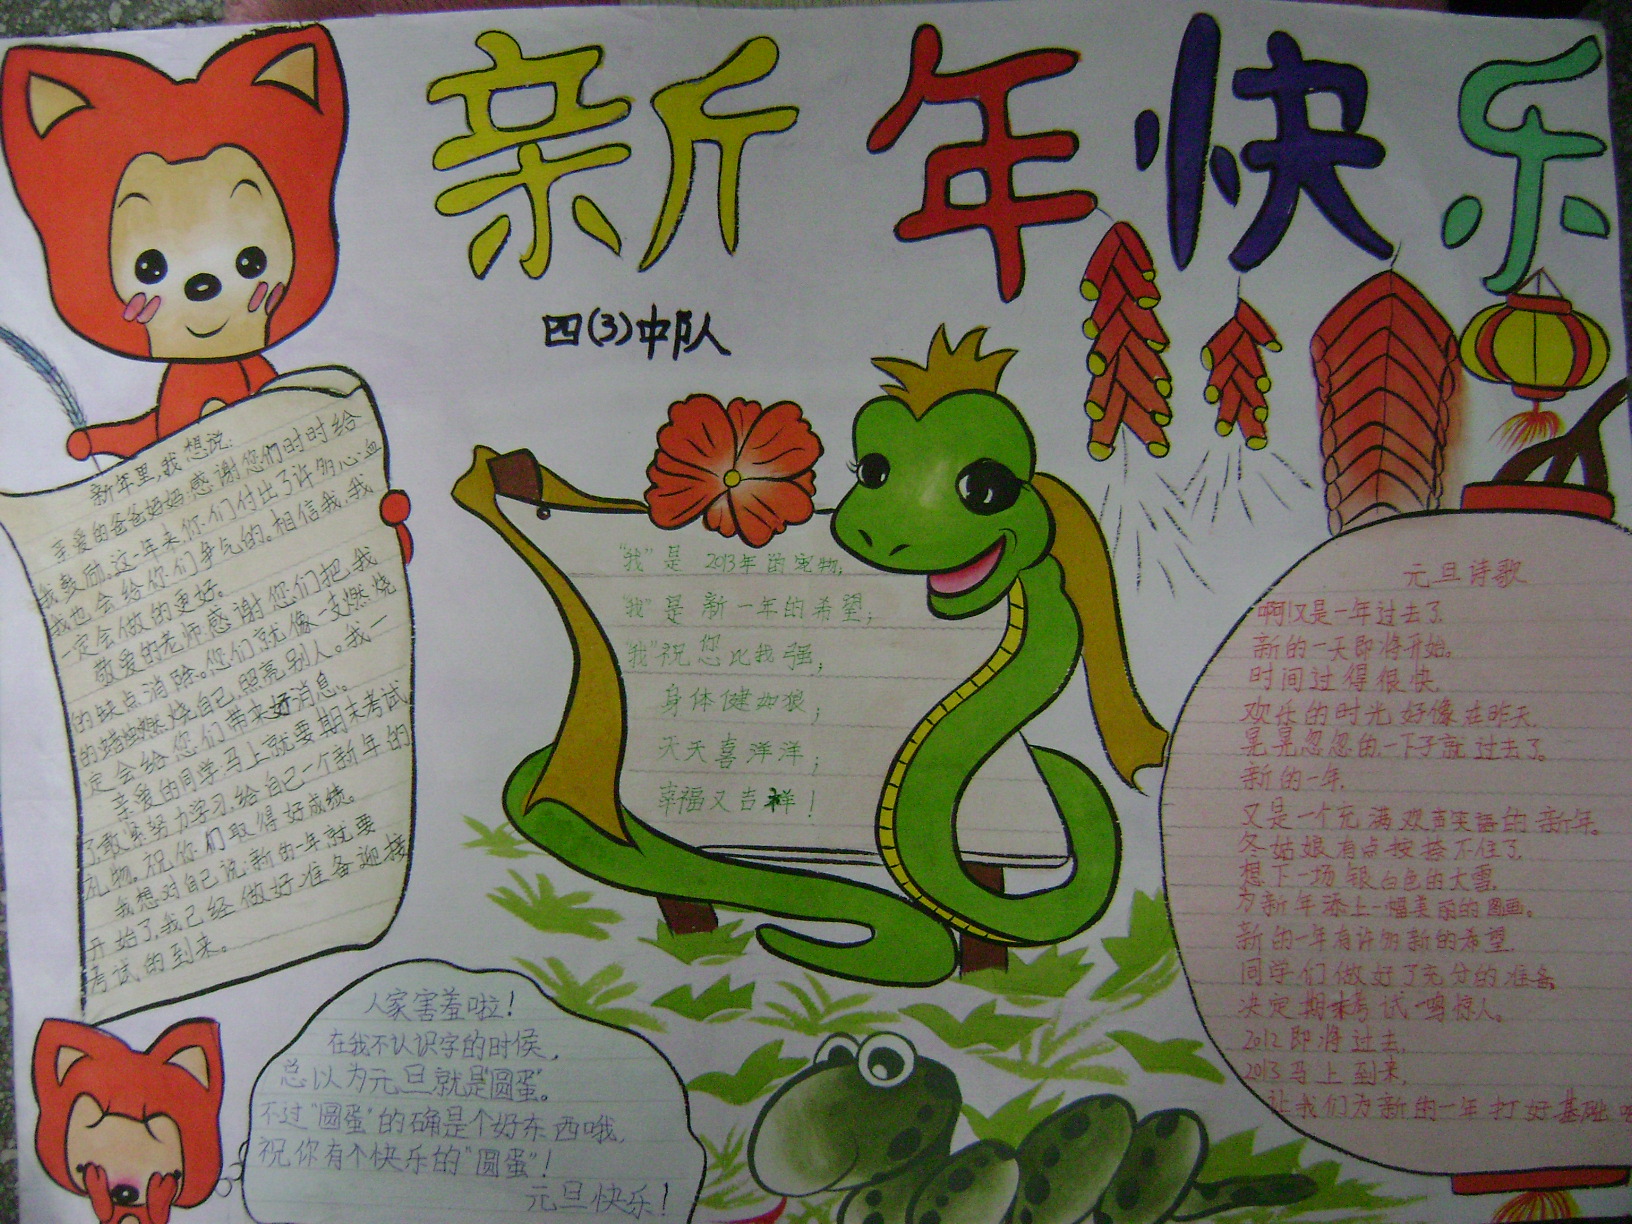 新年快乐
四(3)中队
新年里,我想说:
亲爱的爸爸妈妈:感谢您们时时给
我鼓励。这一年来,你们付出了许多心血
我也会给你们争气的。相信我,我
一定会做的更好。
敬爱的老师,感谢您们把我
的缺点消除。您们就像一支燃烧
的蜡烛燃烧自己,照亮别人。我一
定会给您们带来好消息。
亲爱的同学,马上就要期末考试
了,敢紧努力学习,给自己一个新年的
礼物。祝你们取得好成绩。
我想对自己说:新的一年就要
开始了,我已经做好准备迎接
考试的到来。
“我”是2013年的宠物;
“我”是新一年的希望;
“我”祝您比我强;
身体健如狼;
天天喜洋洋;
幸福又吉祥!
元旦诗歌
啊!又是一年过去了,
新的一天即将开始。
时间过得很快,
欢乐的时光好像在昨天,
晃晃忽忽的一下子就过去了。
新的一年,
又是一个充满欢声笑语的新年。
冬姑娘有点按捺不住了,
想下一场银白色的大雪,
为新年添上一幅美丽的图画。
新的一年有许多新的希望,
同学们做好了充分的准备
决定期末考试一鸣惊人。
2012即将过去,
2013马上到来,
让我们为新的一年打好基础
人家害羞啦!
在我不认识字的时侯,
总以为元旦就是“圆蛋”。
不过“圆蛋”的确是个好东西哦,
祝你有个快乐的“圆蛋”!
元旦快乐!